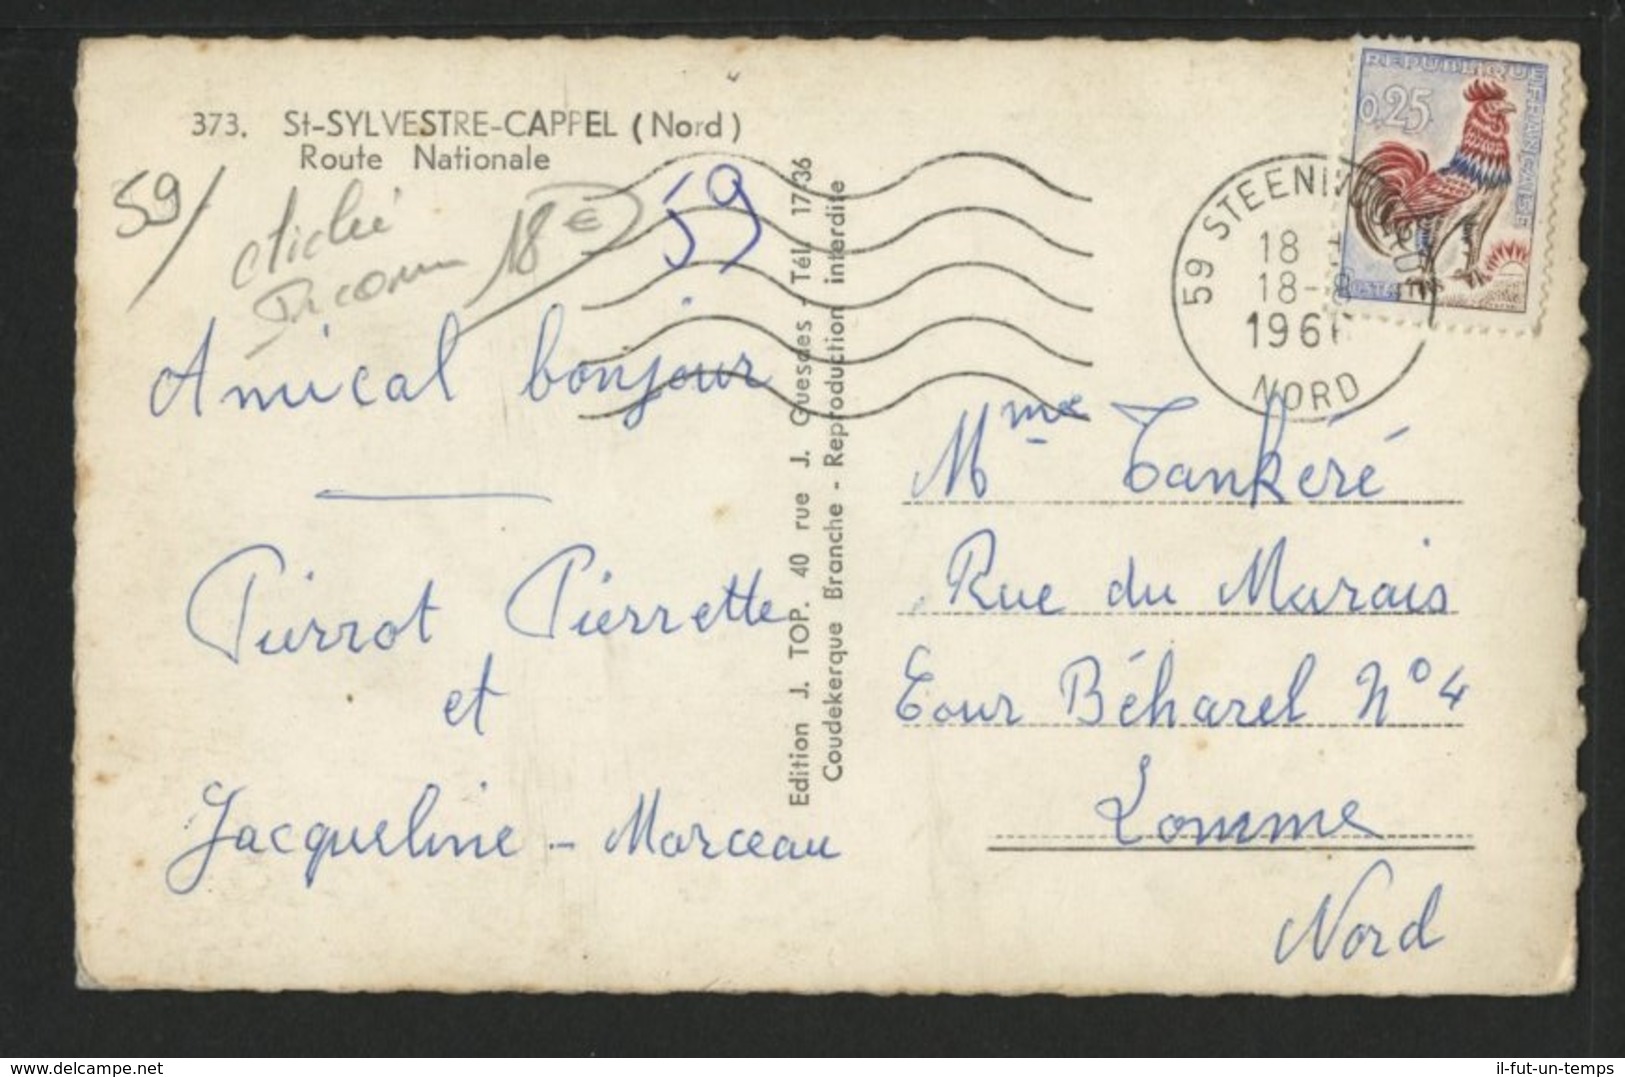 373. St-SYLVESTRE-CAPPEL (Nord)
Route Nationale
59/
cliché
18 €
59
Amical bonjour
Pierrot Pierrette
et
Jacqueline - Marceau
Edition J. TOP. 40 rue J. Guesdes - Tél. 17-36
Coudekerque Branche - Reproduction interdite
REPUBLIQUE FRANÇAISE
0,25
POSTES
59
18
18-8
NORD
Mme Tankéré
Rue du Marais
Tour Béharel N°4
Lomme
Nord
delcampe.net
il-fut-un-temps